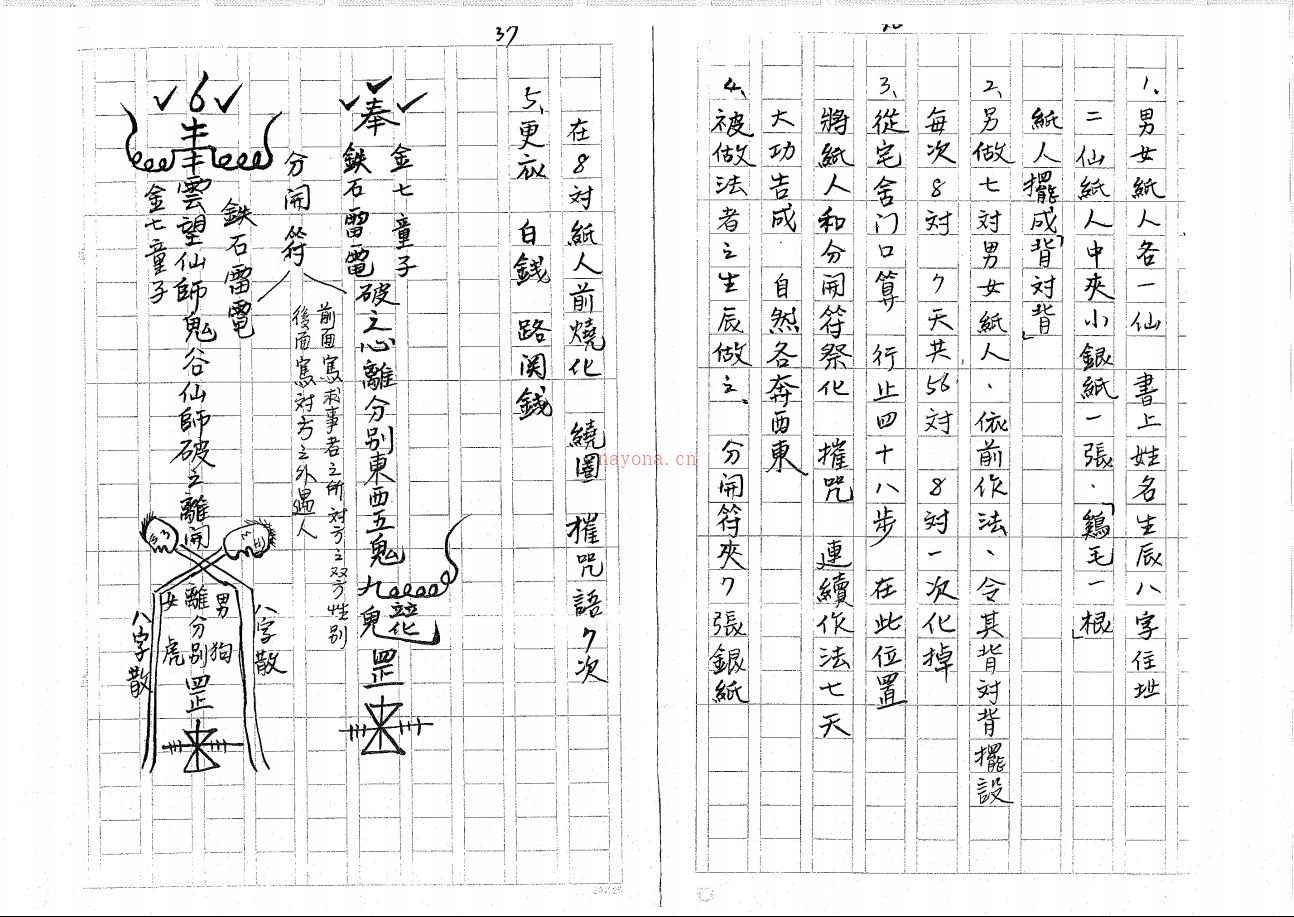 1、男女紙人各一仙　書上姓名生辰八字住址
二仙紙人中夾小銀紙一張．「鷄毛一根」
紙人擺成「背対背」
2、另做七対男女紙人、依前作法、令其背対背擺設
每次8対　7天共56対　8対一次化掉
3、從宅舍门口算　行止四十八步　在此位置
將紙人和分開符祭化　摧咒　連續作法七天
大功告成．自然各奔西東
4、被做法者之生辰做之、　分開符夾7張銀紙
37
在8対紙人前燒化　繞圈　摧咒語7次
5、更衣　白錢　路関錢
金七童子
奉
鉄石雷電
破之心離分别東西五鬼九
罡
分開符
前面寫求事者之所対方之双方性别
後面寫対方之外遇人
6
鉄石雷電
雲望仙師鬼谷仙師破之離開
離分别罡
金七童子
男狗
女虎
八字散
八字散
nayona.cn